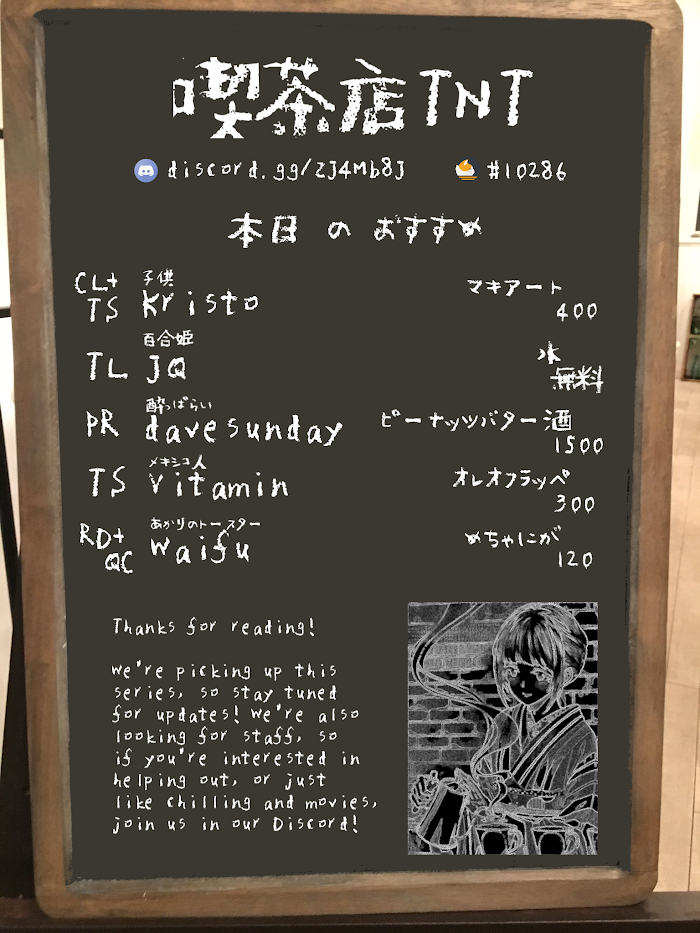 喫茶店TNT
discord.gg/ZJ4Mb8J #10286
本日のおすすめ
CL+ 子供
TS kristo マキアート
400
百合姫
TL JQ 水
無料
酔っぱらい
PR davesunday ピーナッツバター酒
1500
メキシコ人
TS vitamin オレオフラッペ
300
あかりのトースター
RD+ waifu めちゃにが
QC 120
Thanks for reading!
We're picking up this
series, so stay tuned
for updates! We're also
looking for staff, so
if you're interested in
helping out, or just
like chilling and movies,
join us in our Discord!